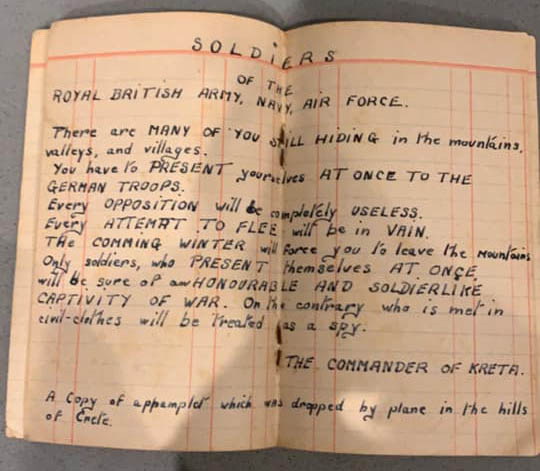 SOLDiERS
OF THE
ROYAL BRiTiSH ARMY, NAVY, AIR FORCE.
There are MANY OF YOU STILL HIDING in the mountains,
valleys, and villages.
You have to PRESENT yourselves AT ONCE TO THE
GERMAN TROOPS.
Every OPPOSITION will be completely USELESS.
Every ATTEMPT TO FLEE will be in VAIN.
THE COMMING WINTER will force you to leave the mountains
Only soldiers, who PRESENT themselves AT ONCE,
will be sure of an HONOURABLE AND SOLDIERLIKE
CAPTIVITY OF WAR. On the contrary who is met in
civil-clothes will be treated as a spy.
THE COMMANDER OF KRETA.
A Copy of a phamplet which was dropped by plane in the hills
of Crete.